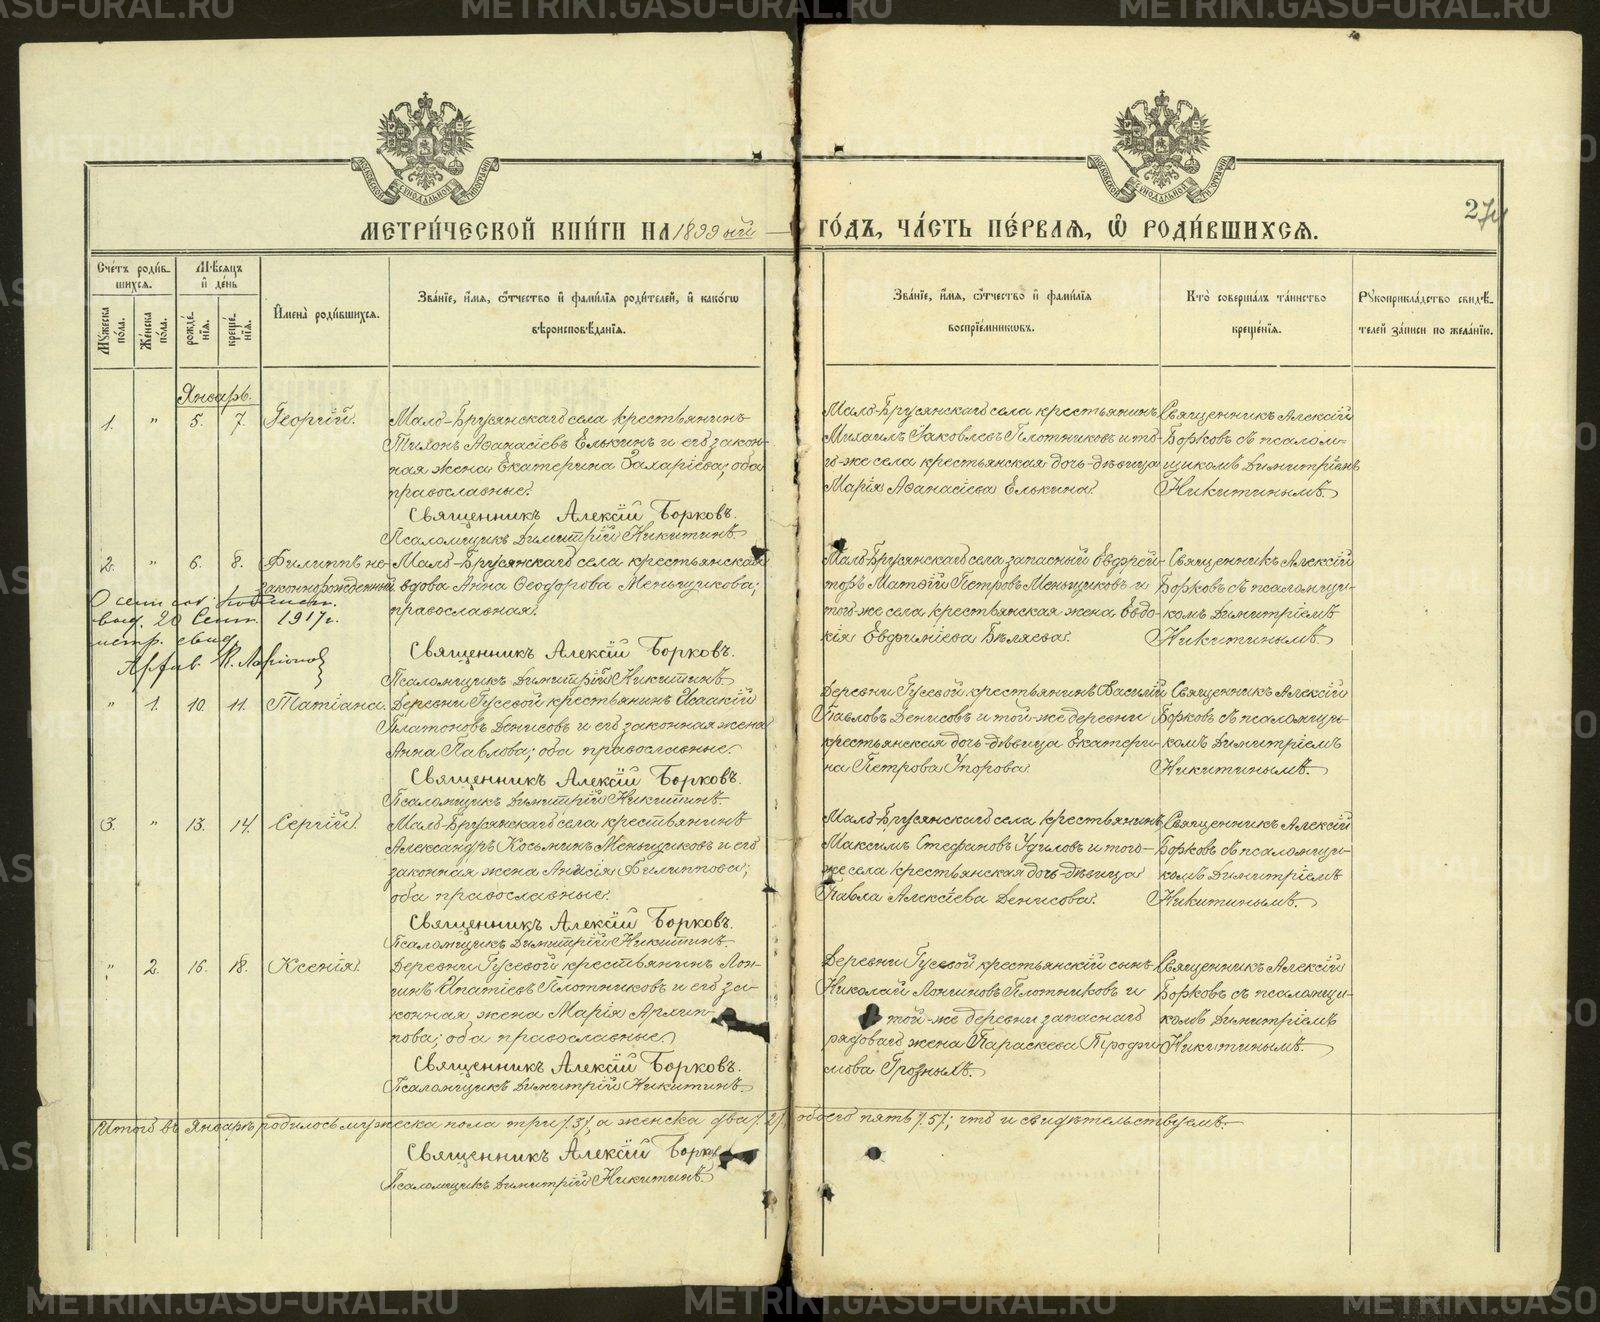 METRIKI.GASU-URAL.RU
МЕТРИ́ЧЕСКОЙ КНИ́ГИ НА 1899 ый
ГО́ДЪ, ЧА́СТЬ ПЕ́РВАЯ, Ѽ РОДИ́ВШИХСЯ.
Сче́тъ роди́в-
шихся.
Мѣсяцъ
и де́нь
Мꙋжеска по́ла.
Же́нска по́ла.
рожде́нїя.
креще́нїя.
Имена̀ роди́вшихся.
Зва́нїе, и́мя, ѻ́тчество и фами́лїя роди́телей, и како́гѡ
вѣроисповѣ́данїя.
Зва́нїе, и́мя, ѻ́тчество и фами́лїя
воспрїе́мникѡвъ.
Кто̀ соверша́лъ та́инство
креще́нїя.
Рꙋкоприкла́дство свидѣ́-
телей за́писи по жела́нїю.
Январь.
1. " 5. 7. Георгій.
Мало-Брусянскаго села крестьянинъ
Тихонъ Аѳанасіевъ Елькинъ и его закон-
ная жена Екатерина Захаріева; оба
православные.
Священникъ Алексій Борковъ.
Псаломщикъ Димитрій Никитинъ.
Мало-Брусянскаго села крестьянинъ
Михаилъ Іаковлевъ Плотниковъ и то-
го-же села крестьянская дочь-дѣвица
Марія Аѳанасіева Елькина.
Священникъ Алексій
Борковъ съ псалом-
щикомъ Димитріемъ
Никитинымъ.
2. " 6. 8. Филиппъ не-
законнорожденный
Мало-Брусянскаго села крестьянская
вдова Анна Ѳеодорова Меньщикова;
православная.
О семъ
выд. 20 Сент. 1917 г.
метр. свид.
Священникъ Алексій Борковъ.
Псаломщикъ Димитрій Никитинъ.
Мало-Брусянскаго села запасный ефрей-
торъ Матѳій Петровъ Меньщиковъ и
того-же села крестьянская жена Евдо-
кія Евфиміева Бѣляева.
Священникъ Алексій
Борковъ съ псаломщи-
комъ Димитріемъ
Никитинымъ.
" 1. 10. 11. Татіана.
Деревни Гусевой крестьянинъ Исаакій
Платоновъ Денисовъ и его законная жена
Анна Павлова; оба православные.
Священникъ Алексій Борковъ.
Псаломщикъ Димитрій Никитинъ.
Деревни Гусевой крестьянинъ Василій
Павловъ Денисовъ и той-же деревни
крестьянская дочь-дѣвица Екатери-
на Петрова Упорова.
Священникъ Алексій
Борковъ съ псаломщи-
комъ Димитріемъ
Никитинымъ.
3. " 13. 14. Сергій.
Мало-Брусянскаго села крестьянинъ
Александръ Косьминъ Меньщиковъ и его
законная жена Анисія Филиппова;
оба православные.
Священникъ Алексій Борковъ.
Псаломщикъ Димитрій Никитинъ.
Мало-Брусянскаго села крестьянинъ
Максимъ Стефановъ Удиловъ и того-
же села крестьянская дочь-дѣвица
Павла Алексіева Денисова.
Священникъ Алексій
Борковъ съ псаломщи-
комъ Димитріемъ
Никитинымъ.
" 2. 16. 18. Ксенія.
Деревни Гусевой крестьянинъ Лон-
гинъ Ипатіевъ Плотниковъ и его за-
конная жена Марія Архип-
пова; оба православные.
Священникъ Алексій Борковъ.
Псаломщикъ Димитрій Никитинъ.
Деревни Гусевой крестьянскій сынъ
Николай Лонгиновъ Плотниковъ и
той-же деревни запаснаго
рядоваго жена Параскева Трофи-
мова Грозныхъ.
Священникъ Алексій
Борковъ съ псаломщи-
комъ Димитріемъ
Никитинымъ.
Итого въ Январѣ родилось мужеска пола три /3/, а женска два /2/, обоего пять /5/; что и свидѣтельствуемъ.
Священникъ Алексій Борк
Псаломщикъ Димитрій Никитинъ.